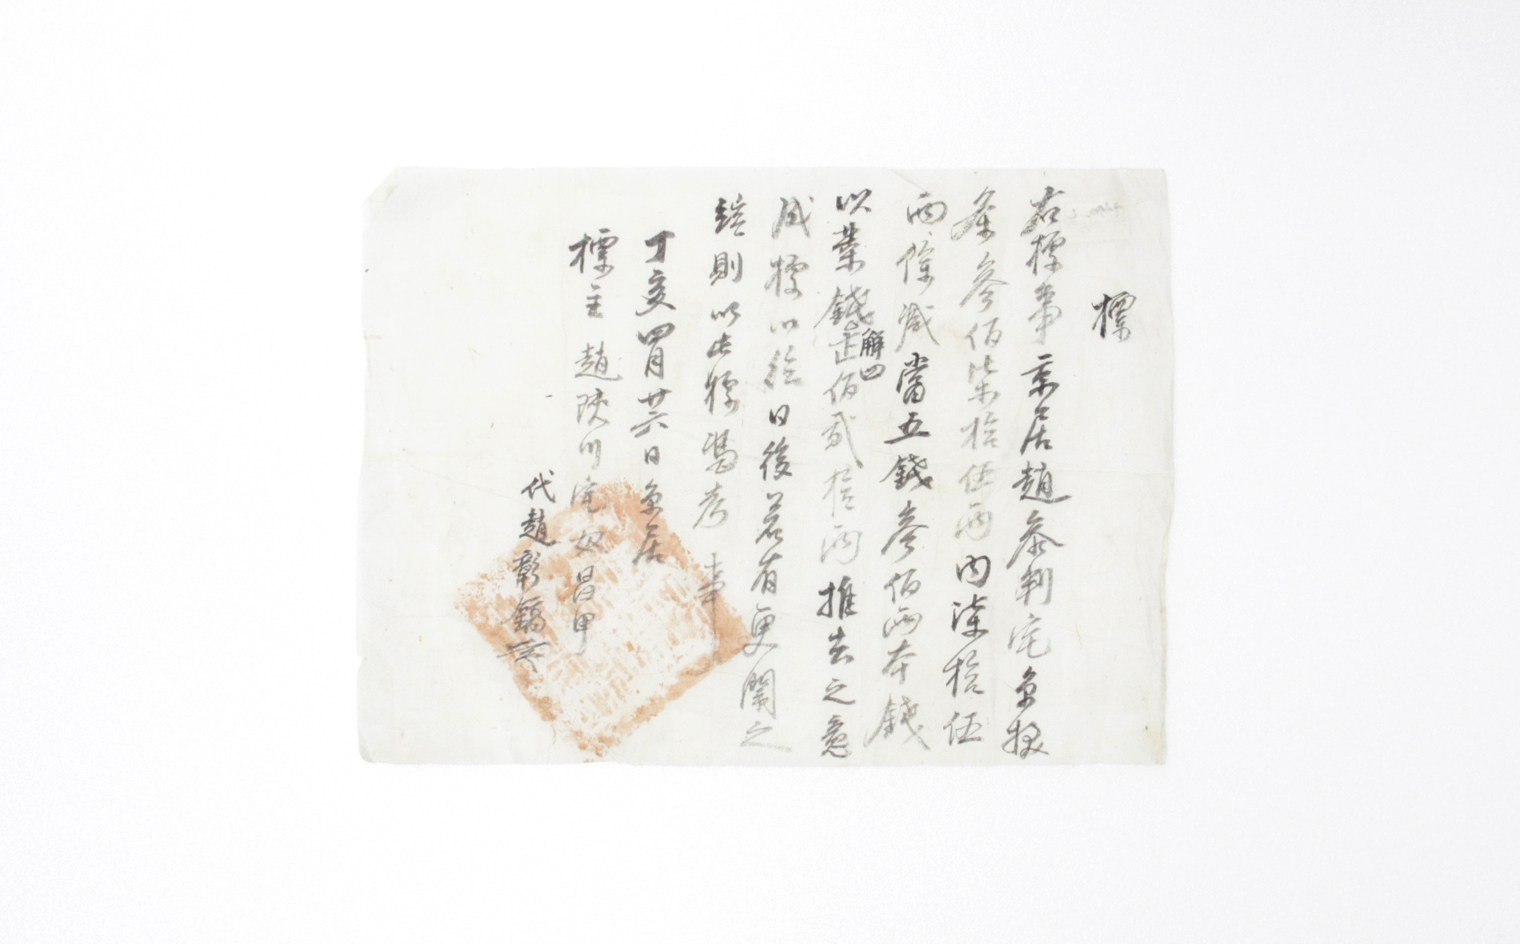 標
右標事京居趙參判宅京換
条參佰柒拾伍兩內柒拾伍
兩除減當五錢參佰兩本錢
以葉錢正佰貳拾兩推去之意
解四
成標以給日後若有更鬧之
端則以此標憑考事
丁亥四月廿六日京居
標主趙陜川宅奴昌甲
代趙彰鎬